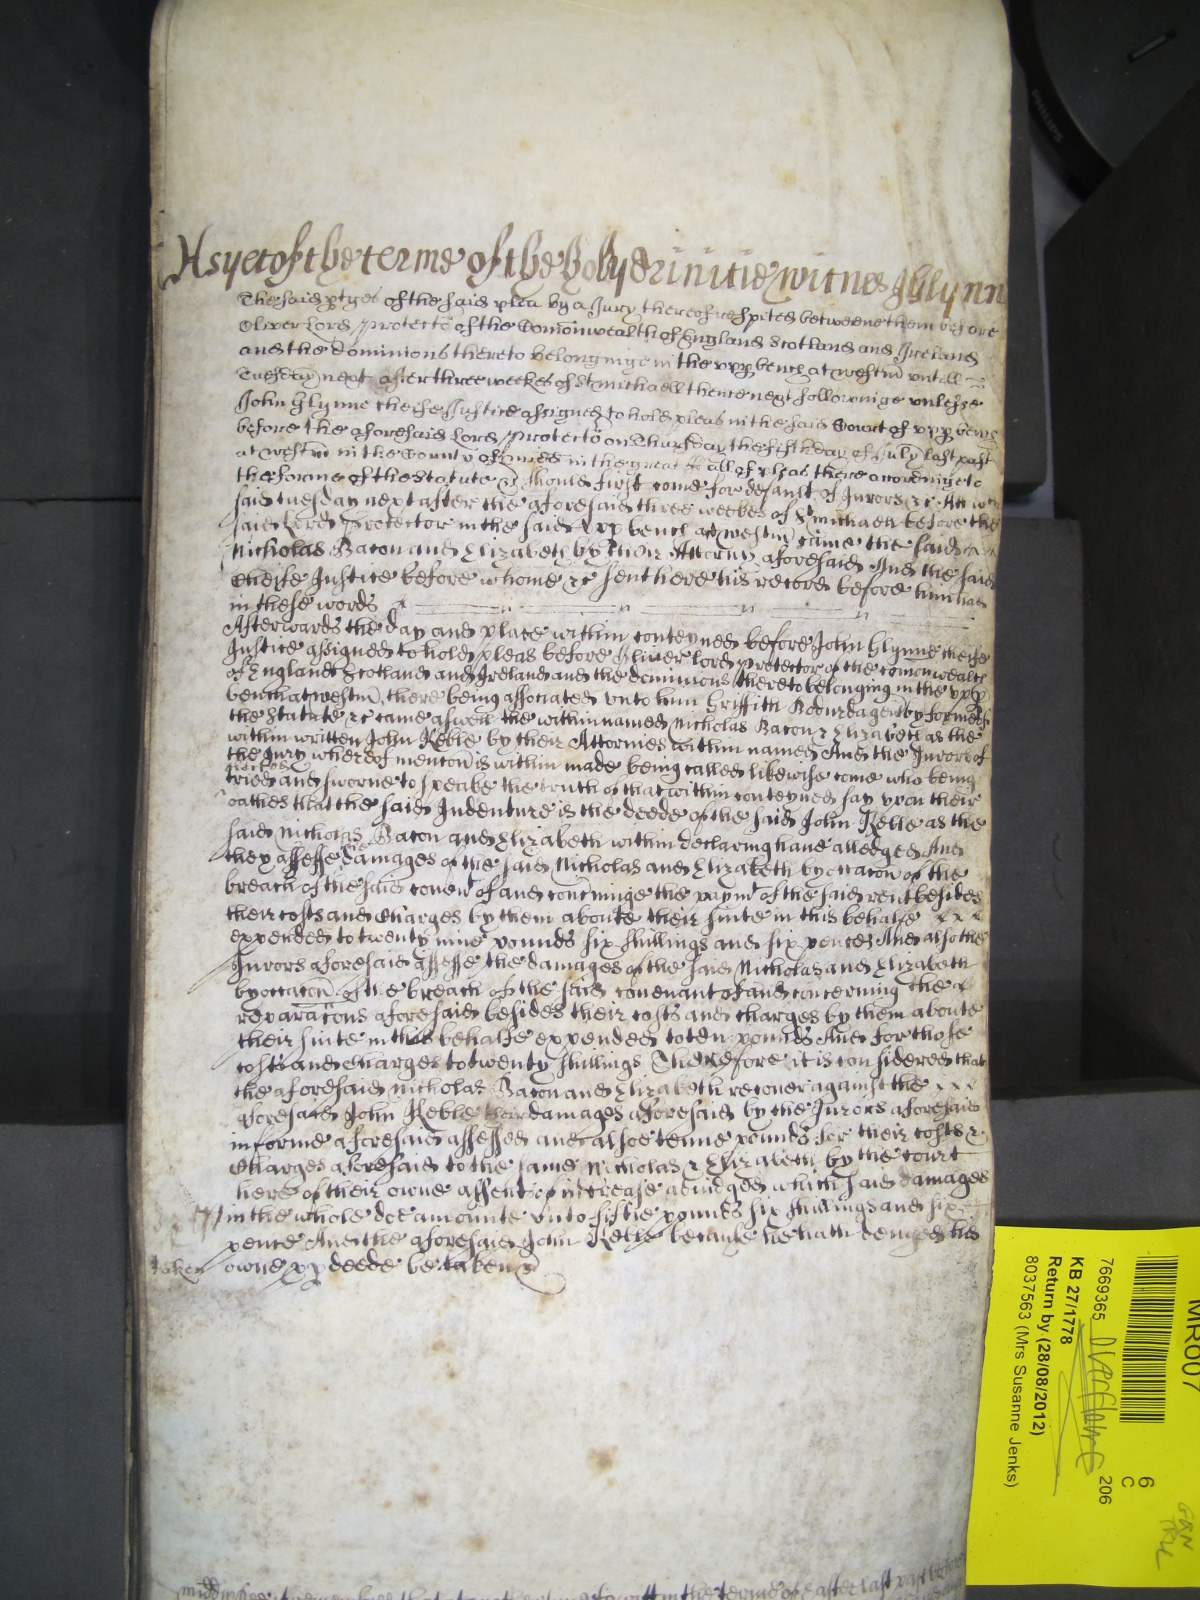 As yet of the terme of the holy Trinitie witnes J Glynn
The said ptyes of the said plea by a Jury thereof respited betweene them before
Oliver Lord Protector of the Comonwealth of England Scotland and Ireland
and the dominions thereto belonginge in the upp bench at westm untill
Tuesday next after three weekes of St michaell thence next followinge unlesse
John Glynne cheife Justice assigned to hold pleas in the said Court of upp bench
before the aforesaid Lord Protector on Thursday the fifth day of July last past
at westm in the County of midd in the great Hall of pleas there accordinge to
the forme of the statute &c should first come for default of Jurors &c Att wch
said tuesday next after the aforesaid three weekes of St michaell before the
said Lord Protector in the said upp bench att westm came the said
Nicholas Bacon and Elizabeth by their Attorny aforesaid And the said
Cheife Justice before whome &c sent here his record before him had
in these words
Afterwards the day and place within conteyned before John Glynne cheife
Justice assigned to hold pleas before Oliver lord protector of the comonwealth
of England Scotland and Ireland and the dominions thereto belonging in the upp
bench at westm, there being associated unto him Griffith Bodurda gent by forme of
the Statute &c came aswell the within named Nicholas Bacon & Elizabeth as the
within written John Keble by their Attornies within named And the Jurors of
the Jury whereof mencon is within made being called likewise come who being
tried and sworne to speake the truth of that within conteyned say upon their
oathes that the said Indenture is the deede of the said John Keble as the
said Nicholas Bacon and Elizabeth within declaring have alledged And
they assesse the damages of the said Nicholas and Elizabeth by occacon of the
breach of the said covent of and concerninge the paymt of the said rent besides
their costs and charges by them aboute their suite in this behalfe x x x
expended to twenty nine pounds six shillings and six pence And also the
Jurors aforesaid assesse the damages of the said Nicholas and Elizabeth
by occacon of the breach of the said covenant of and concerning the
reparacons aforesaid besides their costs and charges by them aboute
their suite in this behalfe expended to ten pounds And for those
costs and charges to twenty shillings Therefore it is considered that
the aforesaid Nicholas Bacon and Elizabeth recover against the x x x
aforesaid John Keble their damages aforesaid by the Jurors aforesaid
in forme aforesaid assessed and alsoe tenne pounds for their costs &
Charges aforesaid to the same Nicholas & Elizabeth by the court
here of their owne assent of increase adiudged which said damages
in the whole doe amounte unto fiftie pounds six shillings and six
pence And the aforesaid John Keble because he hath denyed his
owne pp deede be taken &c
taken
in the terme of Easter last past
MR007
6
C
206
7669365
KB 27/1778
Return by (28/08/2012)
8037563 (Mrs Susanne Jenks)
PHILIPS